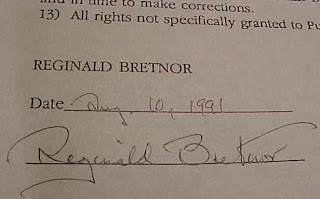 and in time to make corrections.
13) All rights not specifically granted to Pu
REGINALD BRETNOR
Date Aug. 10, 1991
Reginald Bretnor